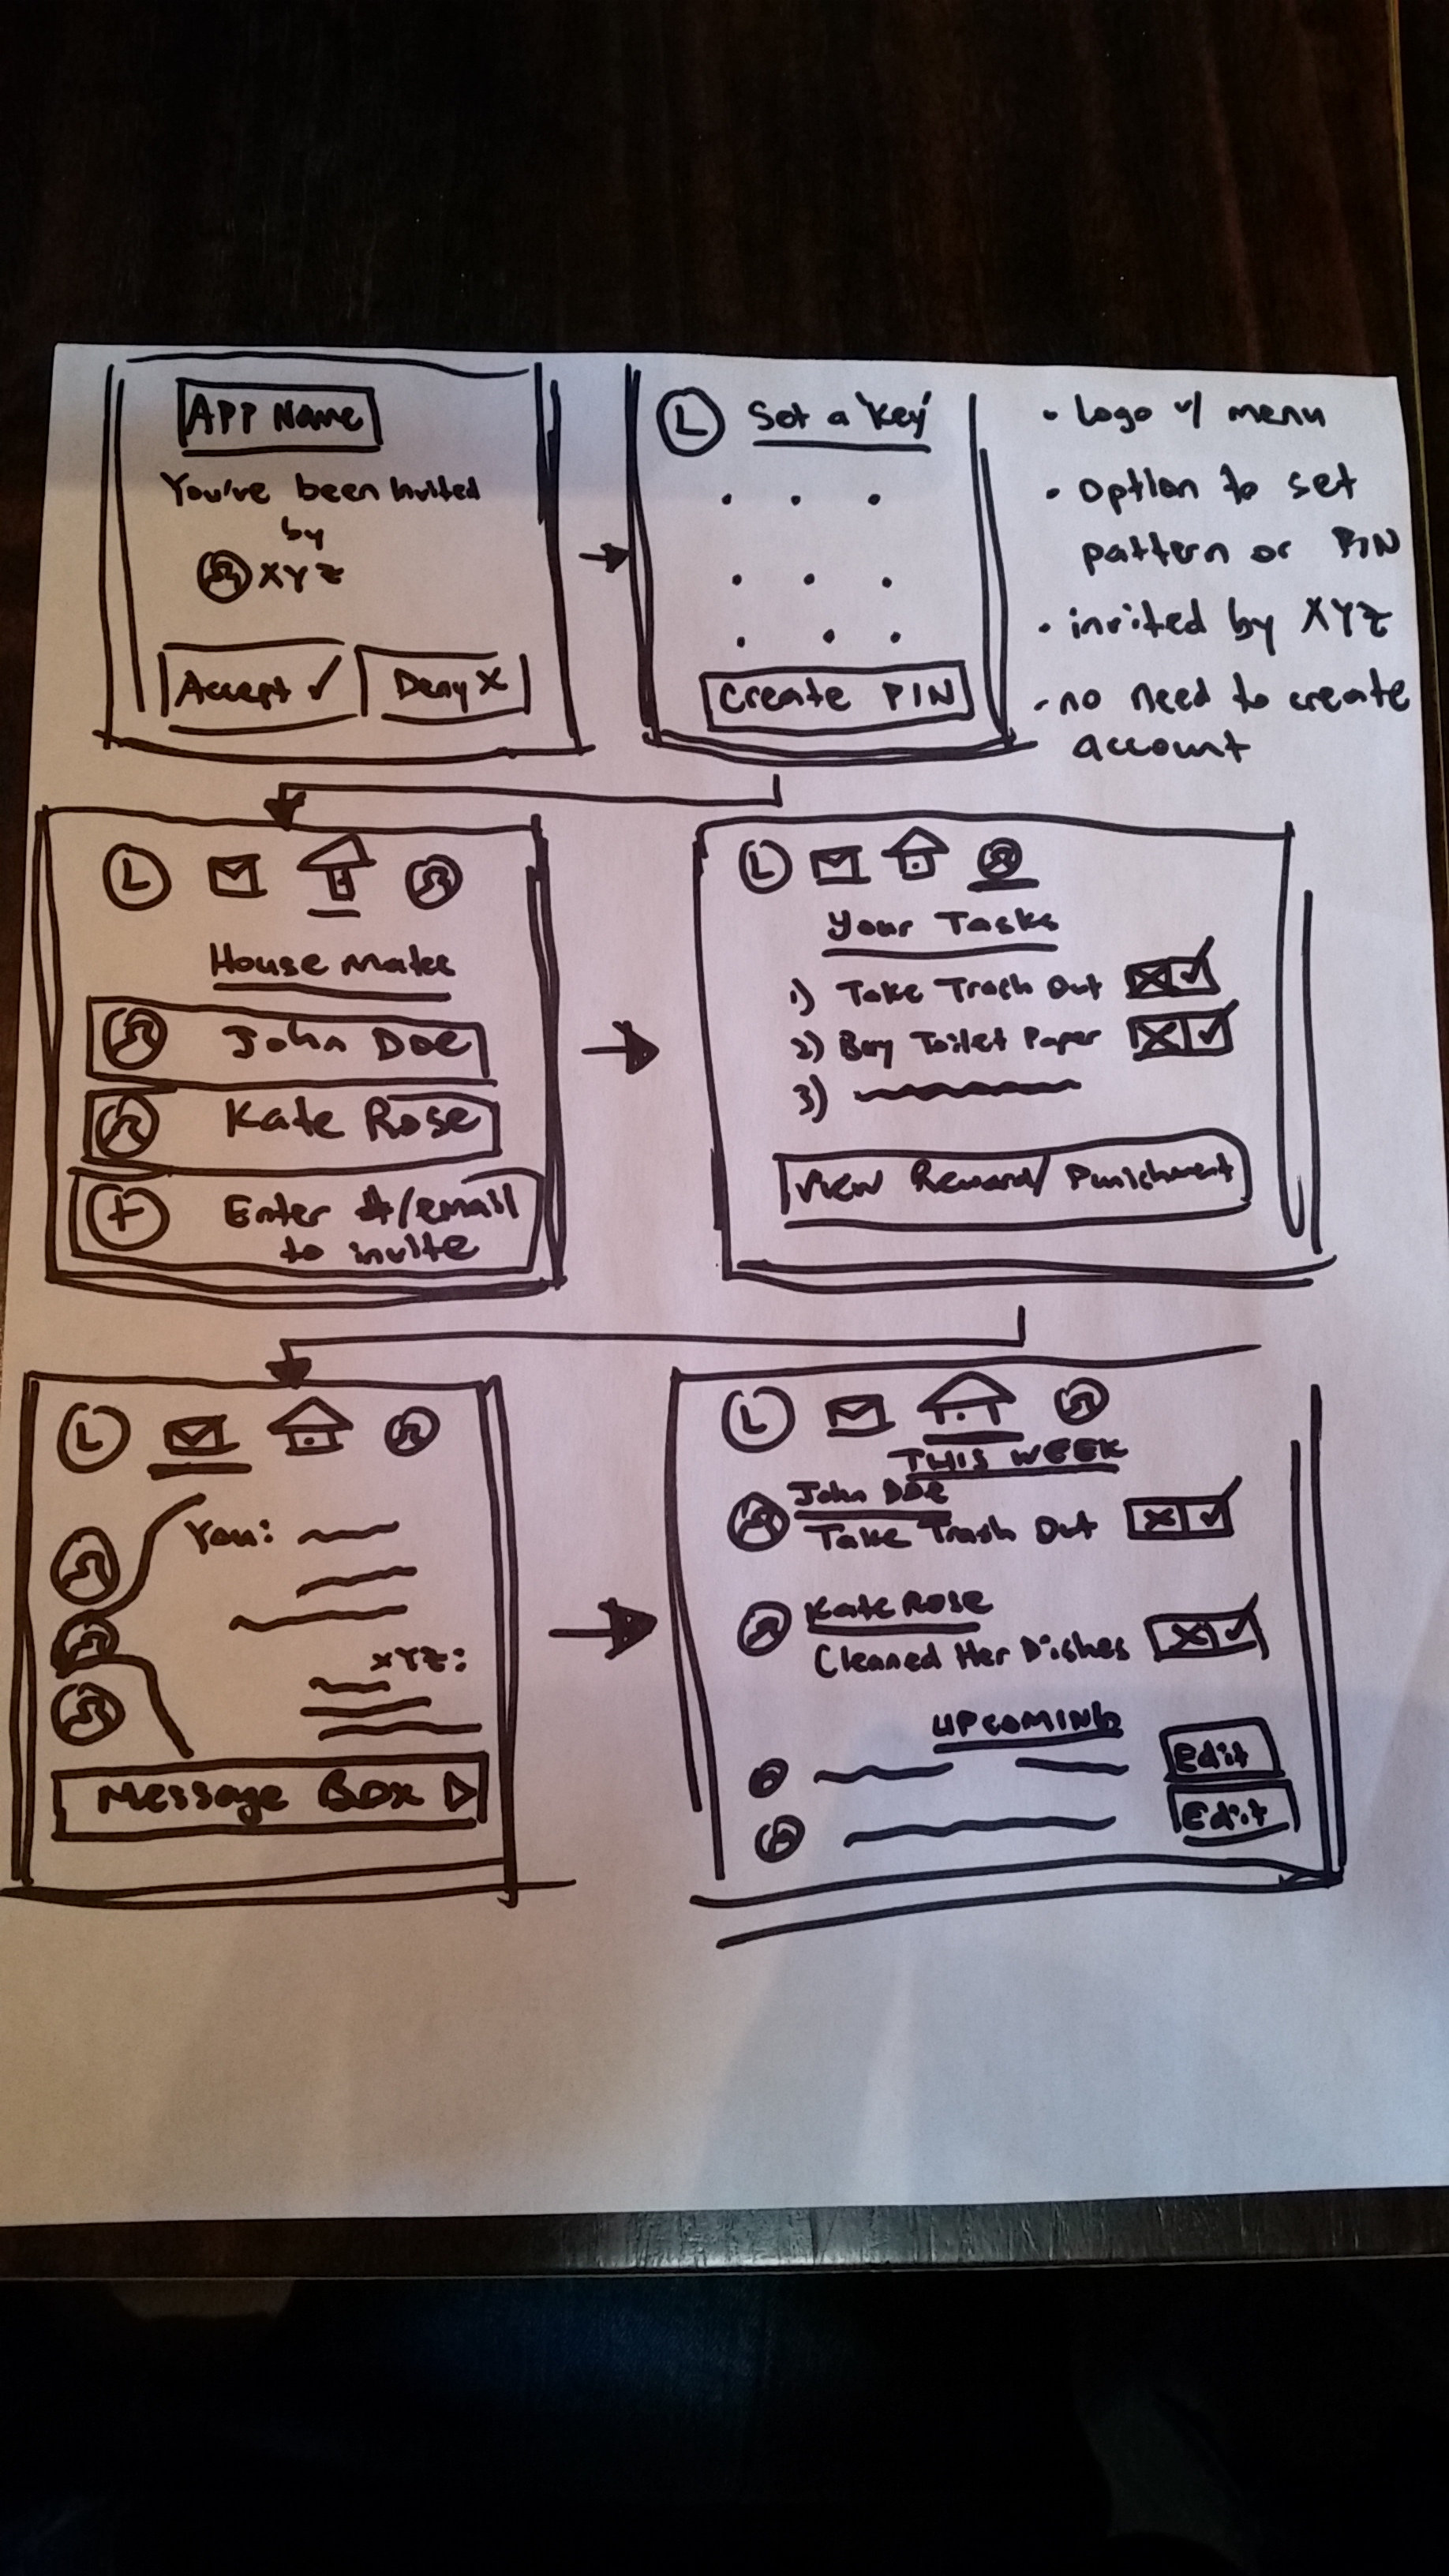 APP Name
You've been invited
by
XYZ
Accept ✓ Deny X
L Set a 'key'
Create PIN
• Logo w/ menu
• Option to set
pattern or PIN
• invited by XYZ
• no need to create
account
L
House Mates
John Doe
Kate Rose
+ Enter #/email
to invite
L
Your Tasks
1) Take Trash Out X ✓
2) Buy Toilet Paper X ✓
3)
View Reward/ Punishment
L
You:
XYZ:
Message Box
L
THIS WEEK
John Doe
Take Trash Out X ✓
Kate Rose
Cleaned Her Dishes X ✓
UPCOMING
Edit
Edit